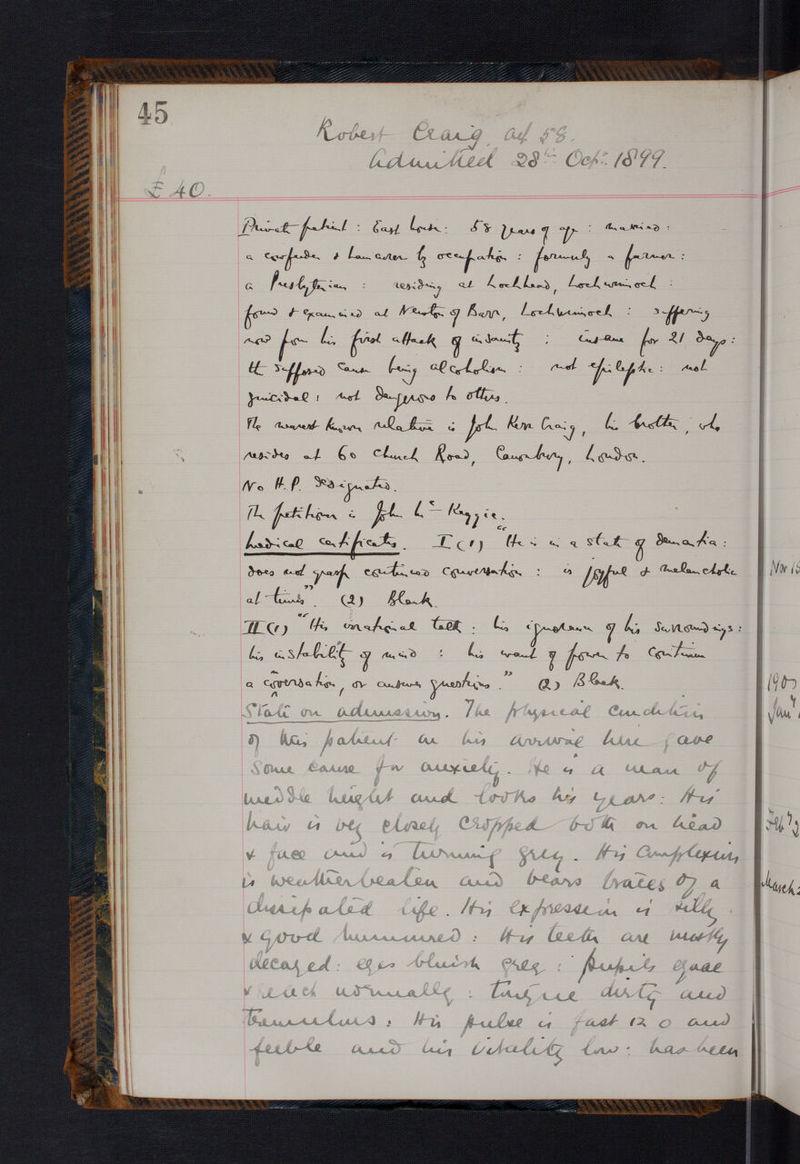 45
Robert Craig, aet 58.
Admitted 28th Octr. 1899.
£40.
Private patient : East House : 58 years of age : married :
a & by occupation : formerly a farmer :
a Presbyterian : residing at Lochhead, Lochwinnoch :
found & examined at Newton of Barr, Lochwinnoch : suffering
now from his first attack of insanity : insane for 21 days :
the supposed cause being alcoholism : not epileptic : not
suicidal : not dangerous to others.
The nearest known relative is John Kerr Craig, his brother, who
resides at 60 Church Road, Canonbury, London.
No H.P. designated.
The petitioner is John
Medical certificates. I (1) "He is in a state of dementia :
does not grasp continued conversation : is joyful & melancholic
at times". (2) Blank.
II (1) "His irrational talk : his ignorance of his surroundings :
his instability of mind : his want of power to continue
a conversation, or answer questions." (2) Blank.
State on admission. The physical condition
of this patient on his arrival here gave
some cause for anxiety. He is a man of
middle height and looks his years : His
hair is very closely cropped both on head
& face and is turning grey. His complexion
is weatherbeaten and bears traces of a
dissipated life. His expression is silly
& good humoured : His teeth are mostly
decayed : eyes bluish grey : pupils equal
& react normally : tongue dirty and
tremulous : His pulse is fast 120 and
feeble and his vitality low : has been
Nov 15
190
Jany
Feby 2
March 2